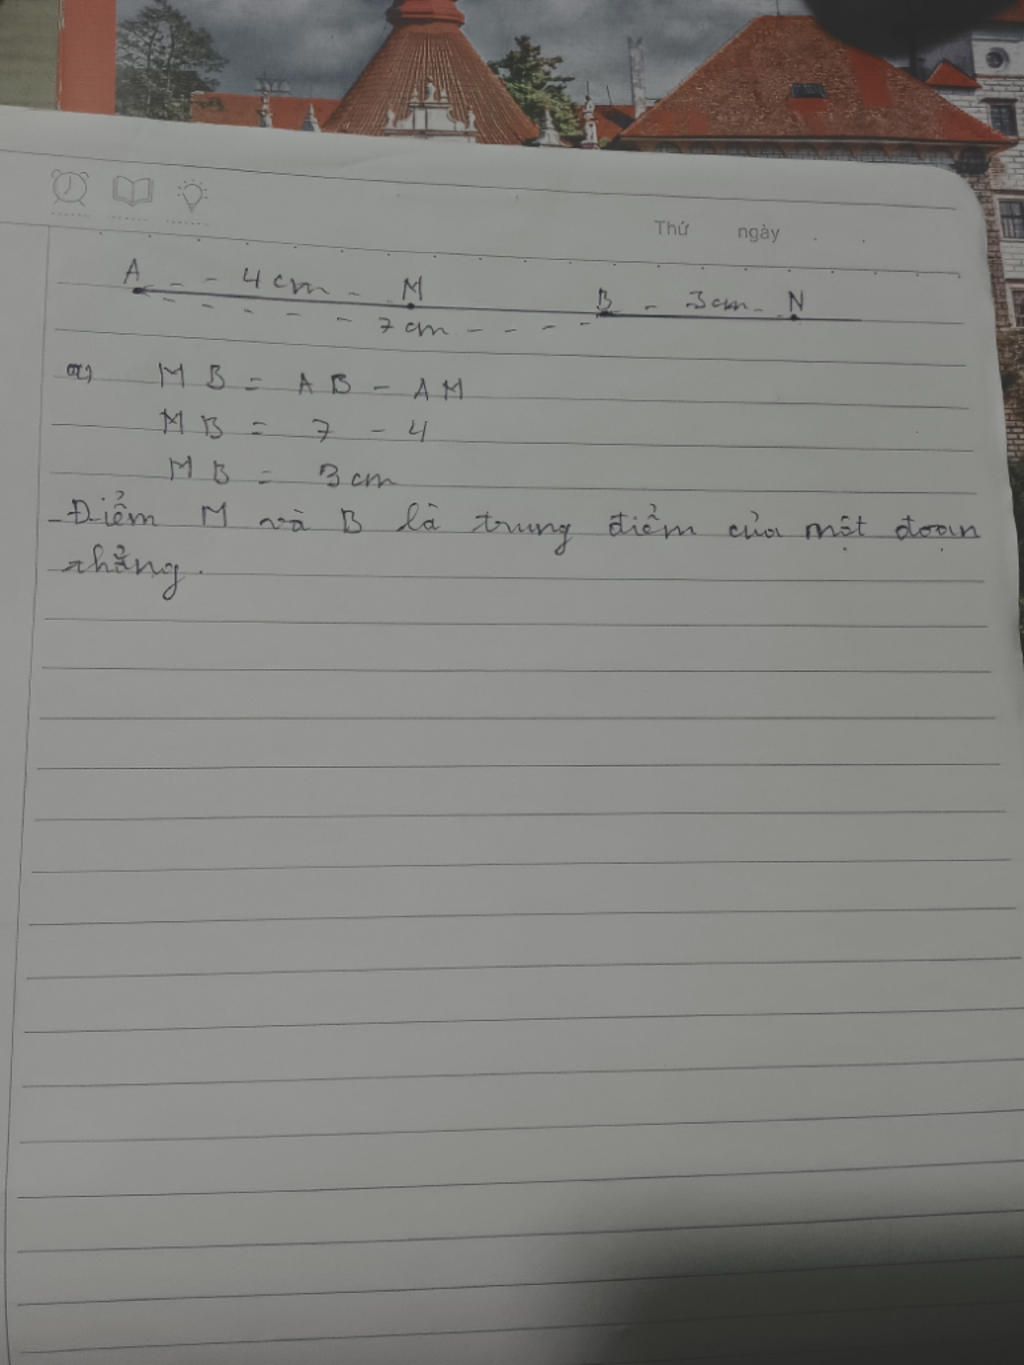 Thứ ngày . .
A - - 4 cm - M B - 3 cm - - N
7 cm
a) M B = A B - A M
M B = 7 - 4
M B = 3 cm
- Điểm M và B là trung điểm của một đoạn
thẳng.